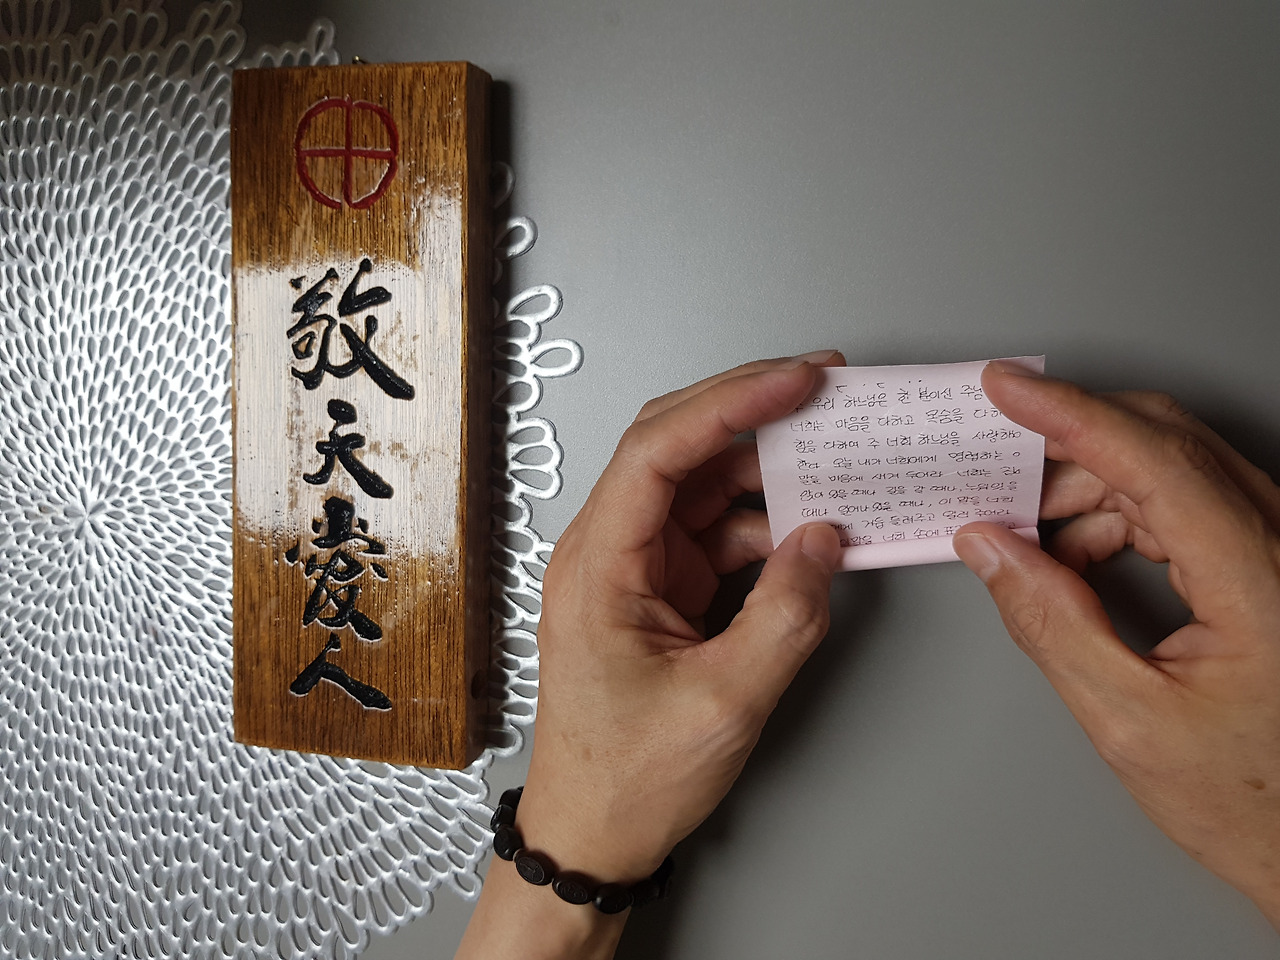 敬天愛人
우리 하느님은 한 분이신 주님
너희는 마음을 다하고 목숨을 다하
힘을 다하여 주 너희 하느님을 사랑해야
한다 오늘 내가 너희에게 명령하는 이
말을 마음에 새겨 두어라 너희는
앉아 있을 때나 길을 갈 때나, 누워있을
때나 일어나 있을 때나, 이 말을 너희
에게 거듭 들려주고 일러 주어라
너희 손에